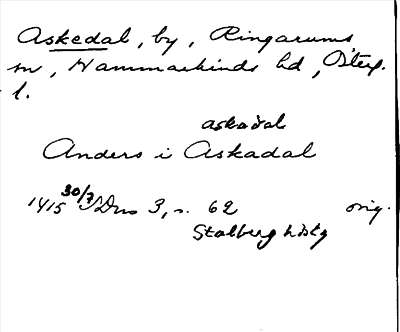 Askedal, by, Ringarums
sn, Hammarkinds hd, Österg.
l.
askadal
Anders i Askadal
1415 30/7 SDns 3, s. 62 orig.
Stålberg hdstg